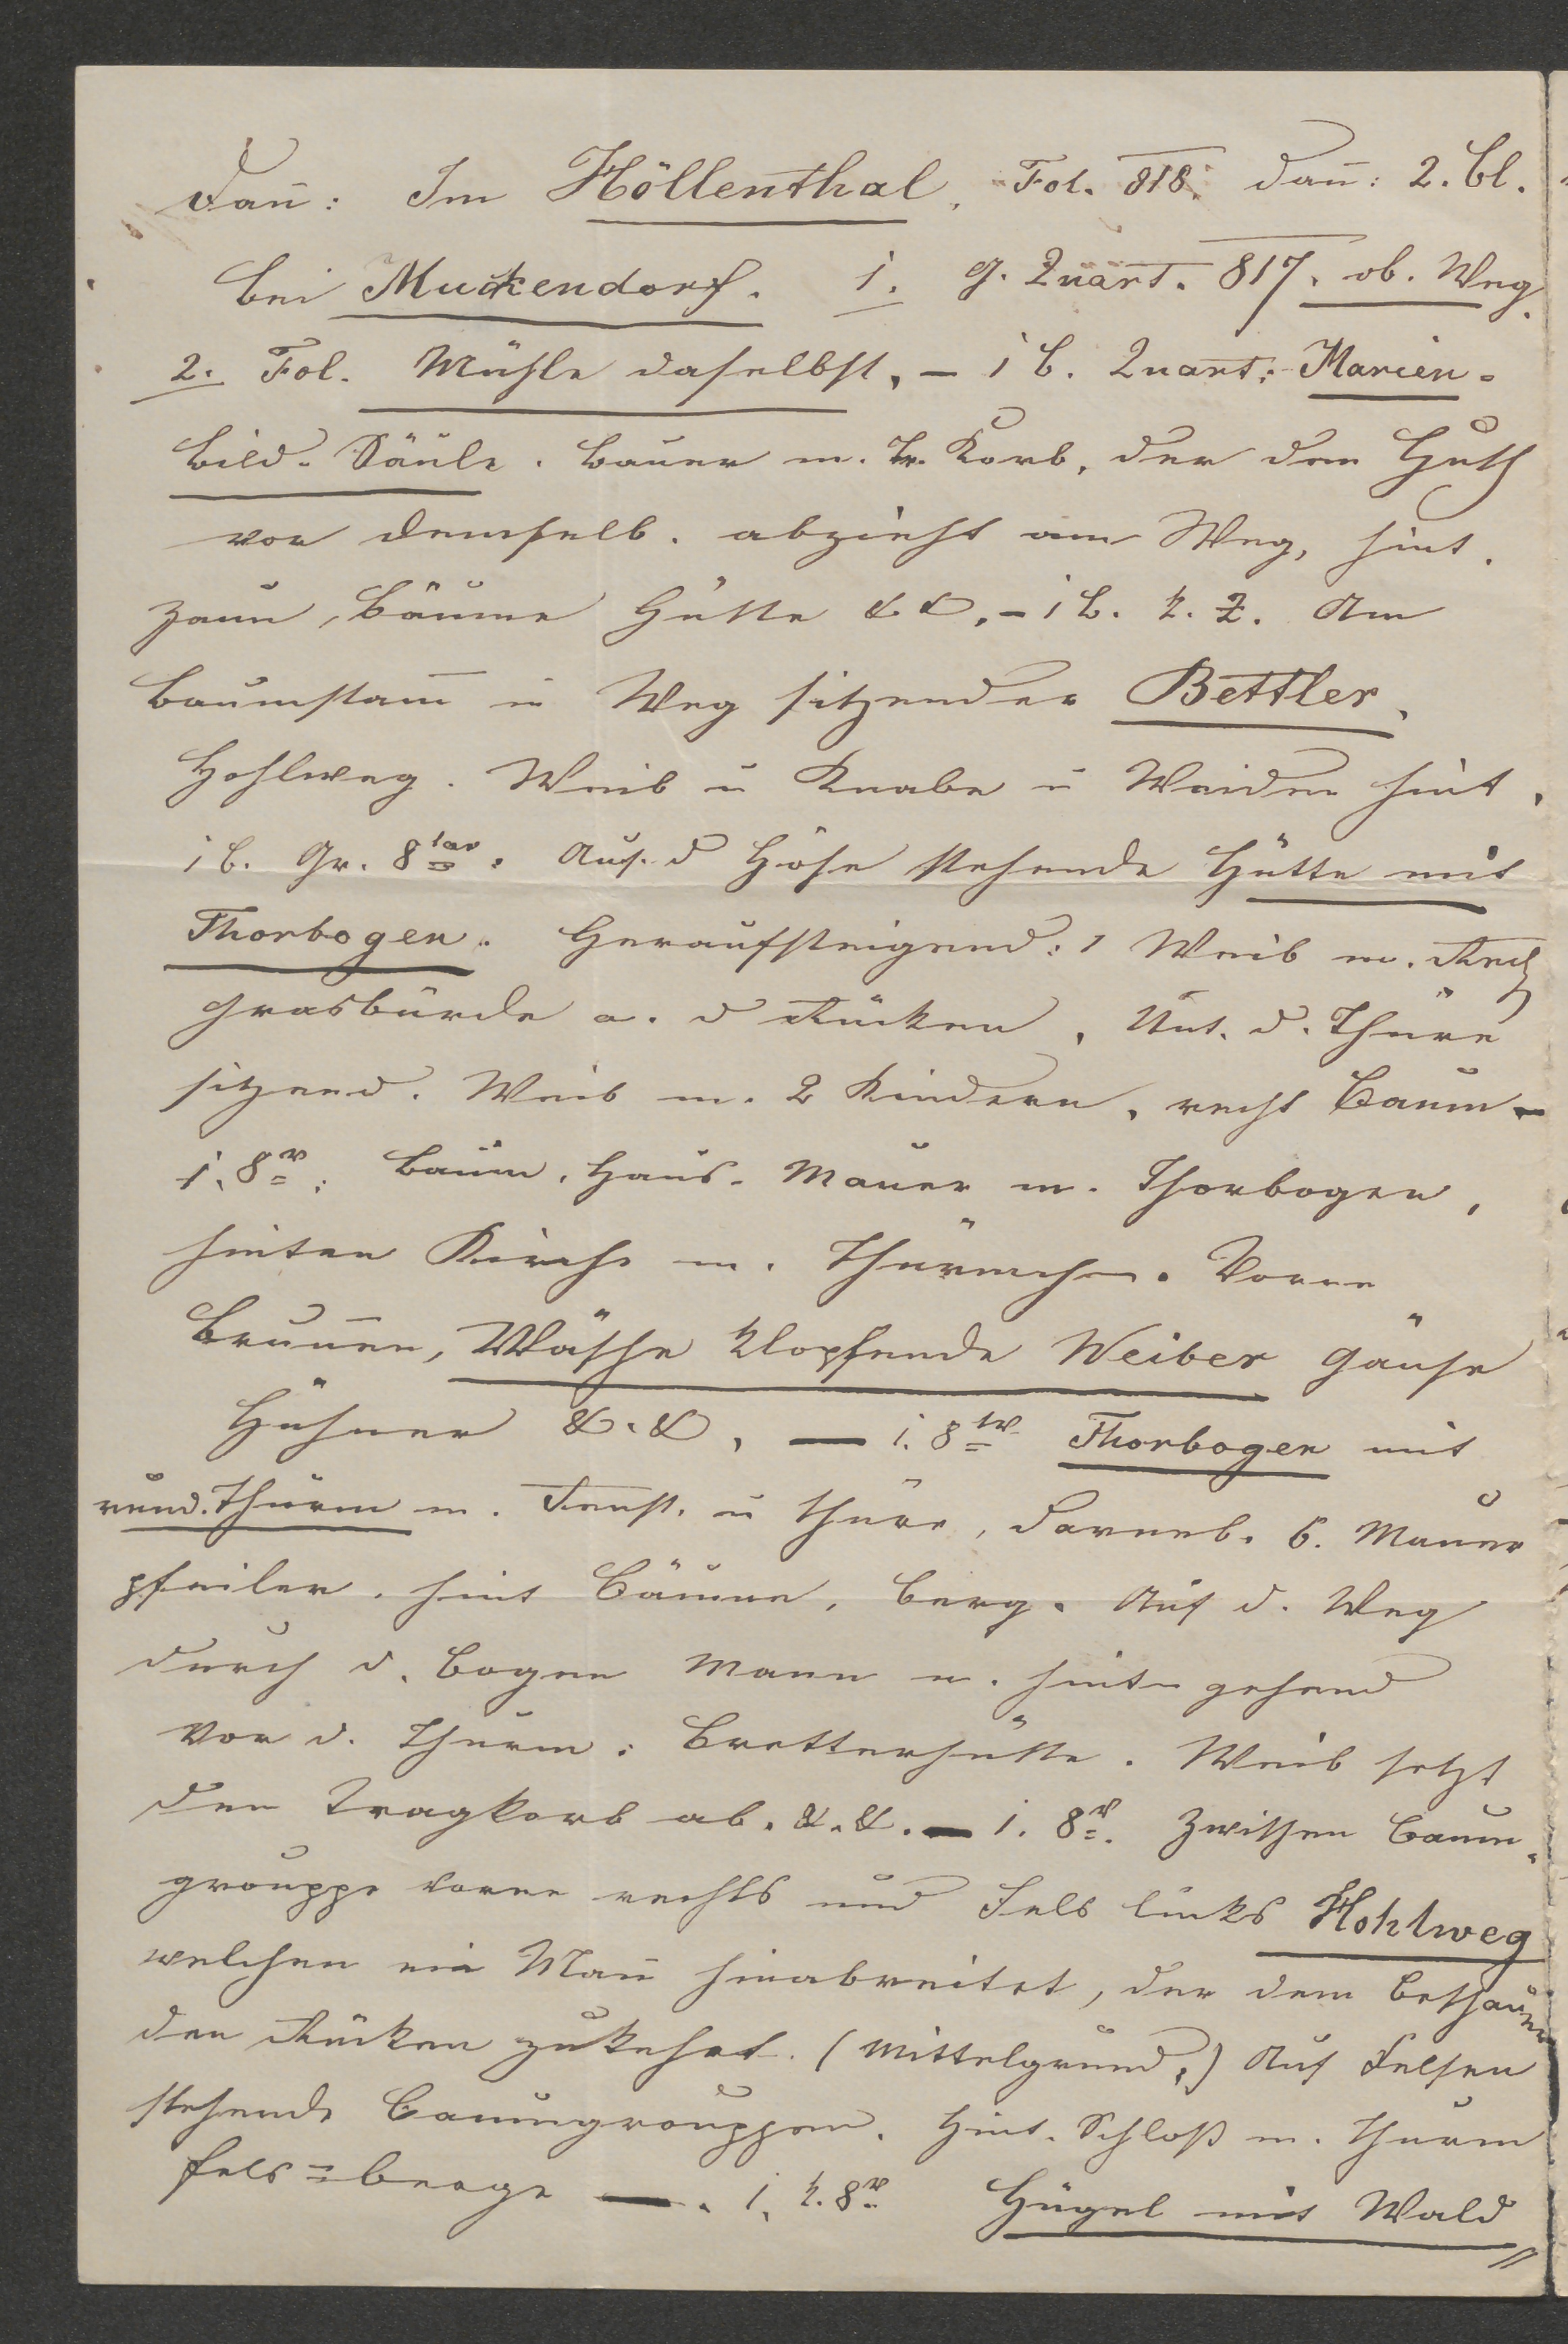 Dan̄: Im Höllenthal. Fol. 818. dan̄: 2. bl.
bei Muckendorf. 1. g. Quart. 817. ob. Weg.
2. Fol. Mühle daselbst, – 1 b. Quart: Marien-
bild-Säule. Bauer m. Tr. Korb, der den Huth
vor demselb. abzieht am Weg, hint.
Zaun, Bäume Hütte &&. – 1 b. k. Z. Am
Baumstam̄ u Weg sitzender Bettler,
Hohlweg. Weib u Knabe u Weiden hint.
1 b. Gr. 8tav. Auf d Höhe stehende Hütte mit
Thorbogen. Heraufsteigend: 1 Weib m.
Grasbürde a. d Rücken. Unt. d. Thüre
sitzend. Weib m. 2 Kindern, recht Baum –
1. 8v: Baum, Haus-Mauer m. Thorbogen,
hinten Kirche m. Thürmchen. Vorne
Brunnen, Wäsche klopfende Weiber Gänse
Hühner &.&. — 1. 8tv Thorbogen mit
rund. Thurm m. Fenst. u Thüre, darneb. b. Mauer
pfeiler. hint Bäume, Berg. Auf d. Weg
durch d. Bogen Mann n. hint. gehend
Vor d. Thurm: Bretterhütte. Weib setzt
den Tragkorb ab. &.&. – 1. 8v. Zwischen Baum-
grouppe vorne rechts und Fels links Hohlweg
welchen ein Man̄ hinabreitet, der dem Beschauer
den Rücken zukehrt. (Mittelgrund.) Auf Felsen
stehende Baumgrouppen. Hint. Schloß m. Thurm
Fels=berge —. 1. k. 8v Hügel mit Wald